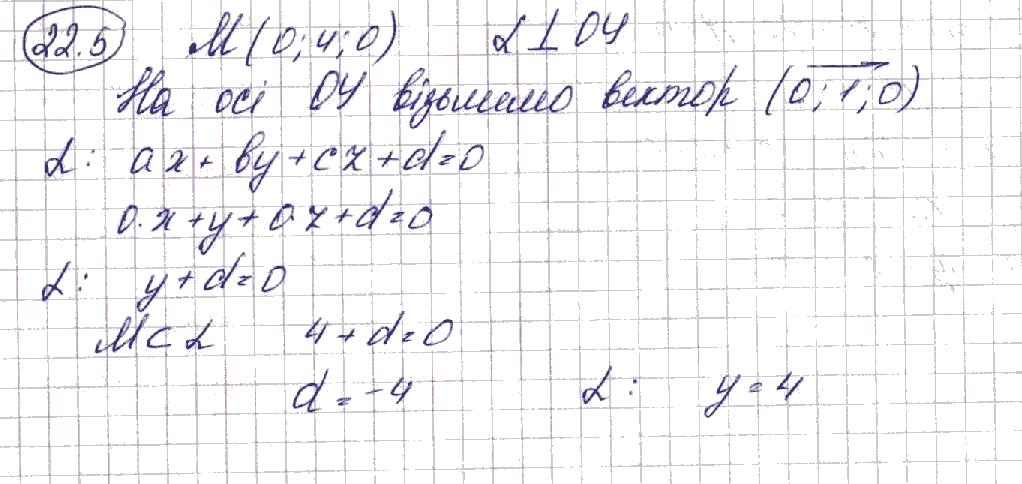 22.5 M(0; 4; 0) α ⊥ OY
На осі OY візьмемо вектор (0; 1; 0)
α: ax + by + cz + d = 0
0·x + y + 0·z + d = 0
α: y + d = 0
M ⊂ α 4 + d = 0
d = -4 α: y = 4